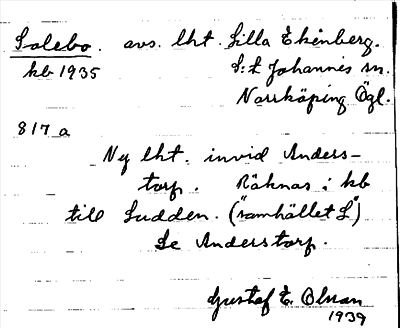 Solebo. avs. lht. Lilla Ekenberg.
kb 1935 S:t Johannis sn.
Norrköping Ögl.
817 a
Ny lht. invid Anders-
torp. Räknas i kb
till Sudden. ("samhället S")
Se Anderstorp.
Gustaf E. Olsson
1939